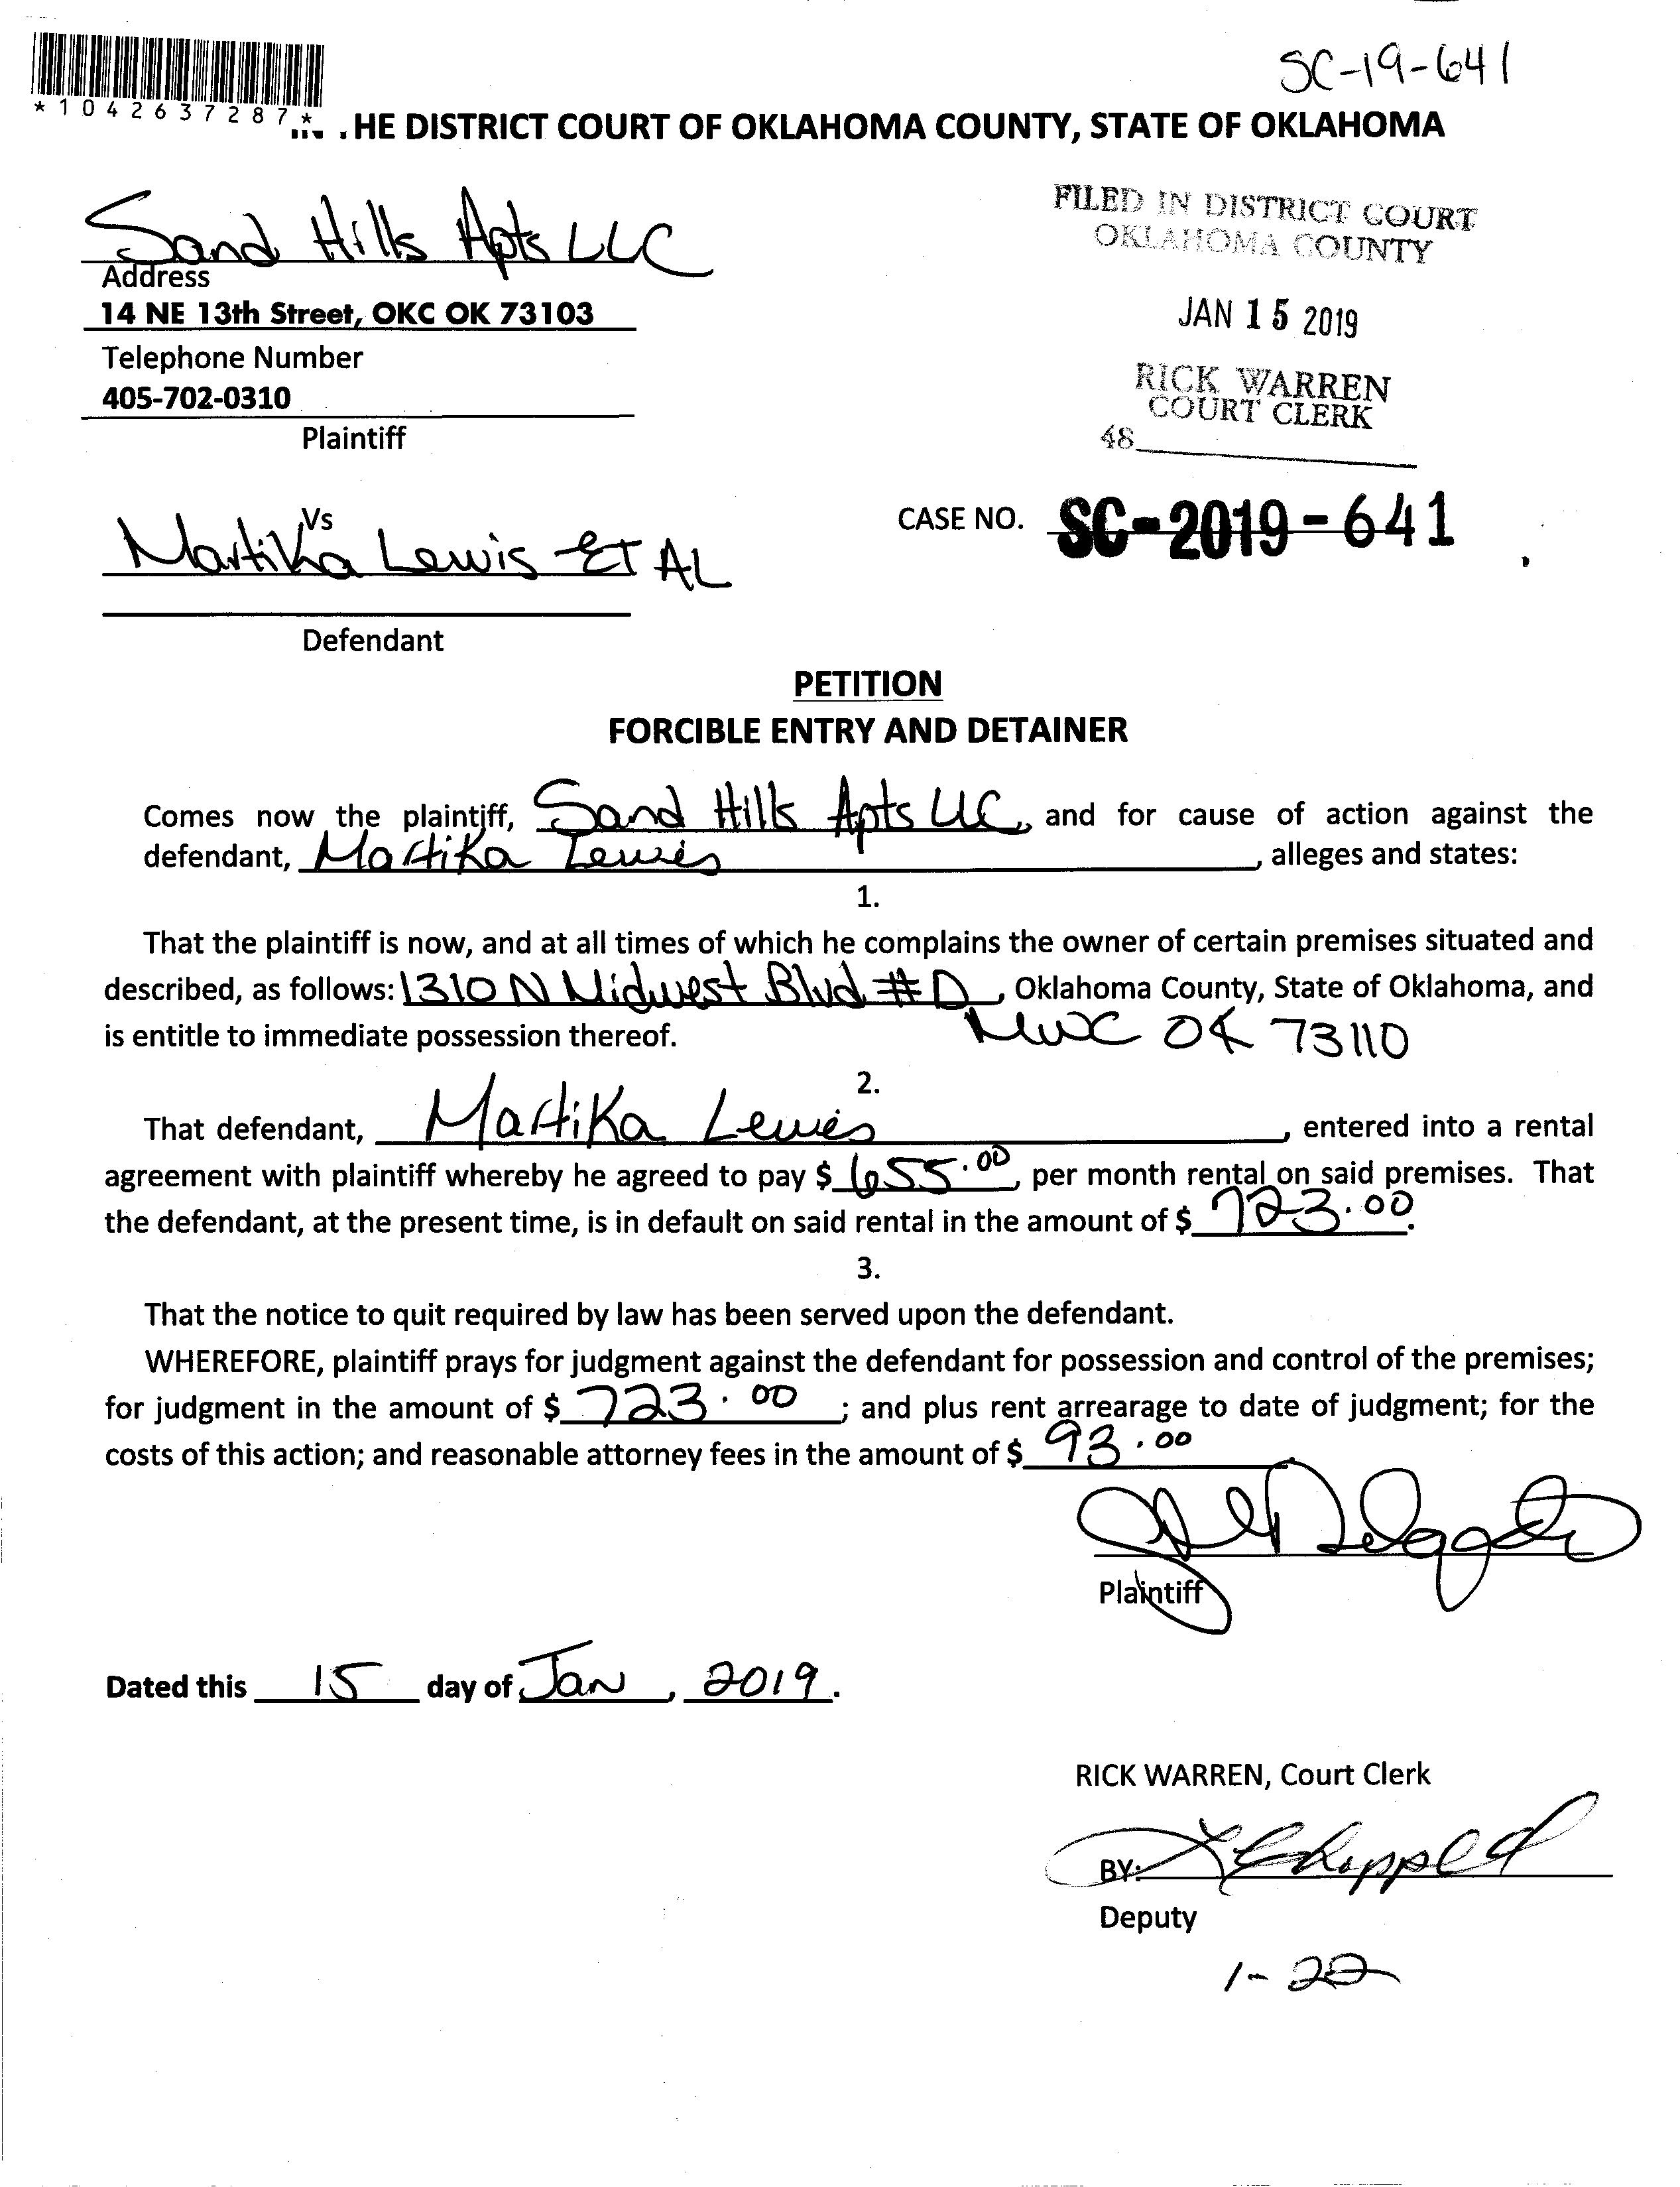 SC-19-641
*1042637287*
HE DISTRICT COURT OF OKLAHOMA COUNTY, STATE OF OKLAHOMA
Sand Hills Apts LLC
Address
14 NE 13th Street, OKC OK 73103
Telephone Number
405-702-0310
Plaintiff
FILED IN DISTRICT COURT
OKLAHOMA COUNTY
JAN 15 2019
RICK WARREN
COURT CLERK
48
Vs
Martika Lewis ET AL
Defendant
CASE NO. SC-2019-641
PETITION
FORCIBLE ENTRY AND DETAINER
Comes now the plaintiff, Sand Hills Apts LLC, and for cause of action against the
defendant, Martika Lewis, alleges and states:
1.
That the plaintiff is now, and at all times of which he complains the owner of certain premises situated and
described, as follows: 1310 N Midwest Blvd #D, Oklahoma County, State of Oklahoma, and
is entitle to immediate possession thereof. MWC OK 73110
2.
That defendant, Martika Lewis, entered into a rental
agreement with plaintiff whereby he agreed to pay $ 655.00, per month rental on said premises. That
the defendant, at the present time, is in default on said rental in the amount of $ 723.00.
3.
That the notice to quit required by law has been served upon the defendant.
WHEREFORE, plaintiff prays for judgment against the defendant for possession and control of the premises;
for judgment in the amount of $ 723.00; and plus rent arrearage to date of judgment; for the
costs of this action; and reasonable attorney fees in the amount of $ 93.00
Delgado
Plaintiff
Dated this 15 day of Jan, 2019.
RICK WARREN, Court Clerk
BY:
Deputy
1-22